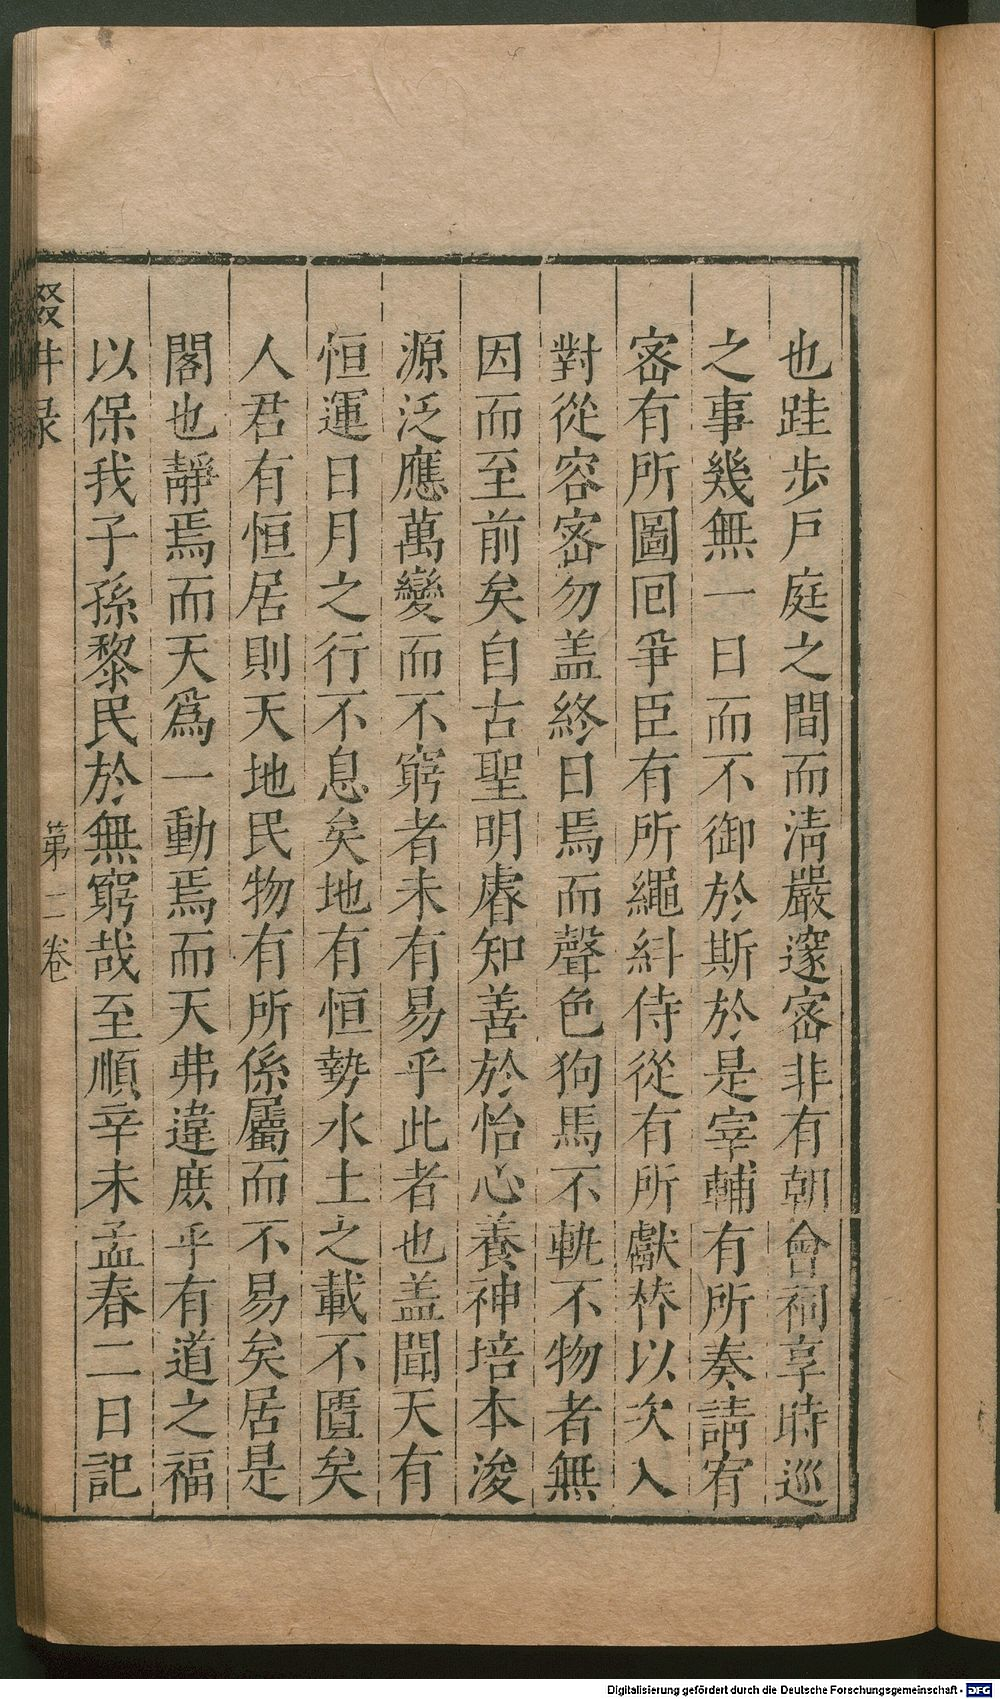 也跬歩戶庭之間而清嚴邃宻非有朝會祠享時巡
之事幾無一日而不御於斯於是宰輔有所奏請宥
宻有所圖回爭臣有所繩糾侍從有所獻替以次入
對從容宻勿盖終日焉而聲色狗馬不軌不物者無
因而至前矣自古聖明睿知善於怡心養神培本浚
源泛應萬變而不窮者未有易乎此者也盖聞天有
恒運日月之行不息矣地有恒勢水土之載不匱矣
人君有恒居則天地民物有所係屬而不易矣居是
閣也靜焉而天爲一動焉而天弗違庶乎有道之福
以保我子孫黎民於無窮哉至順辛未孟春二日記
第二卷
Digitalisierung gefördert durch die Deutsche Forschungsgemeinschaft - DFG